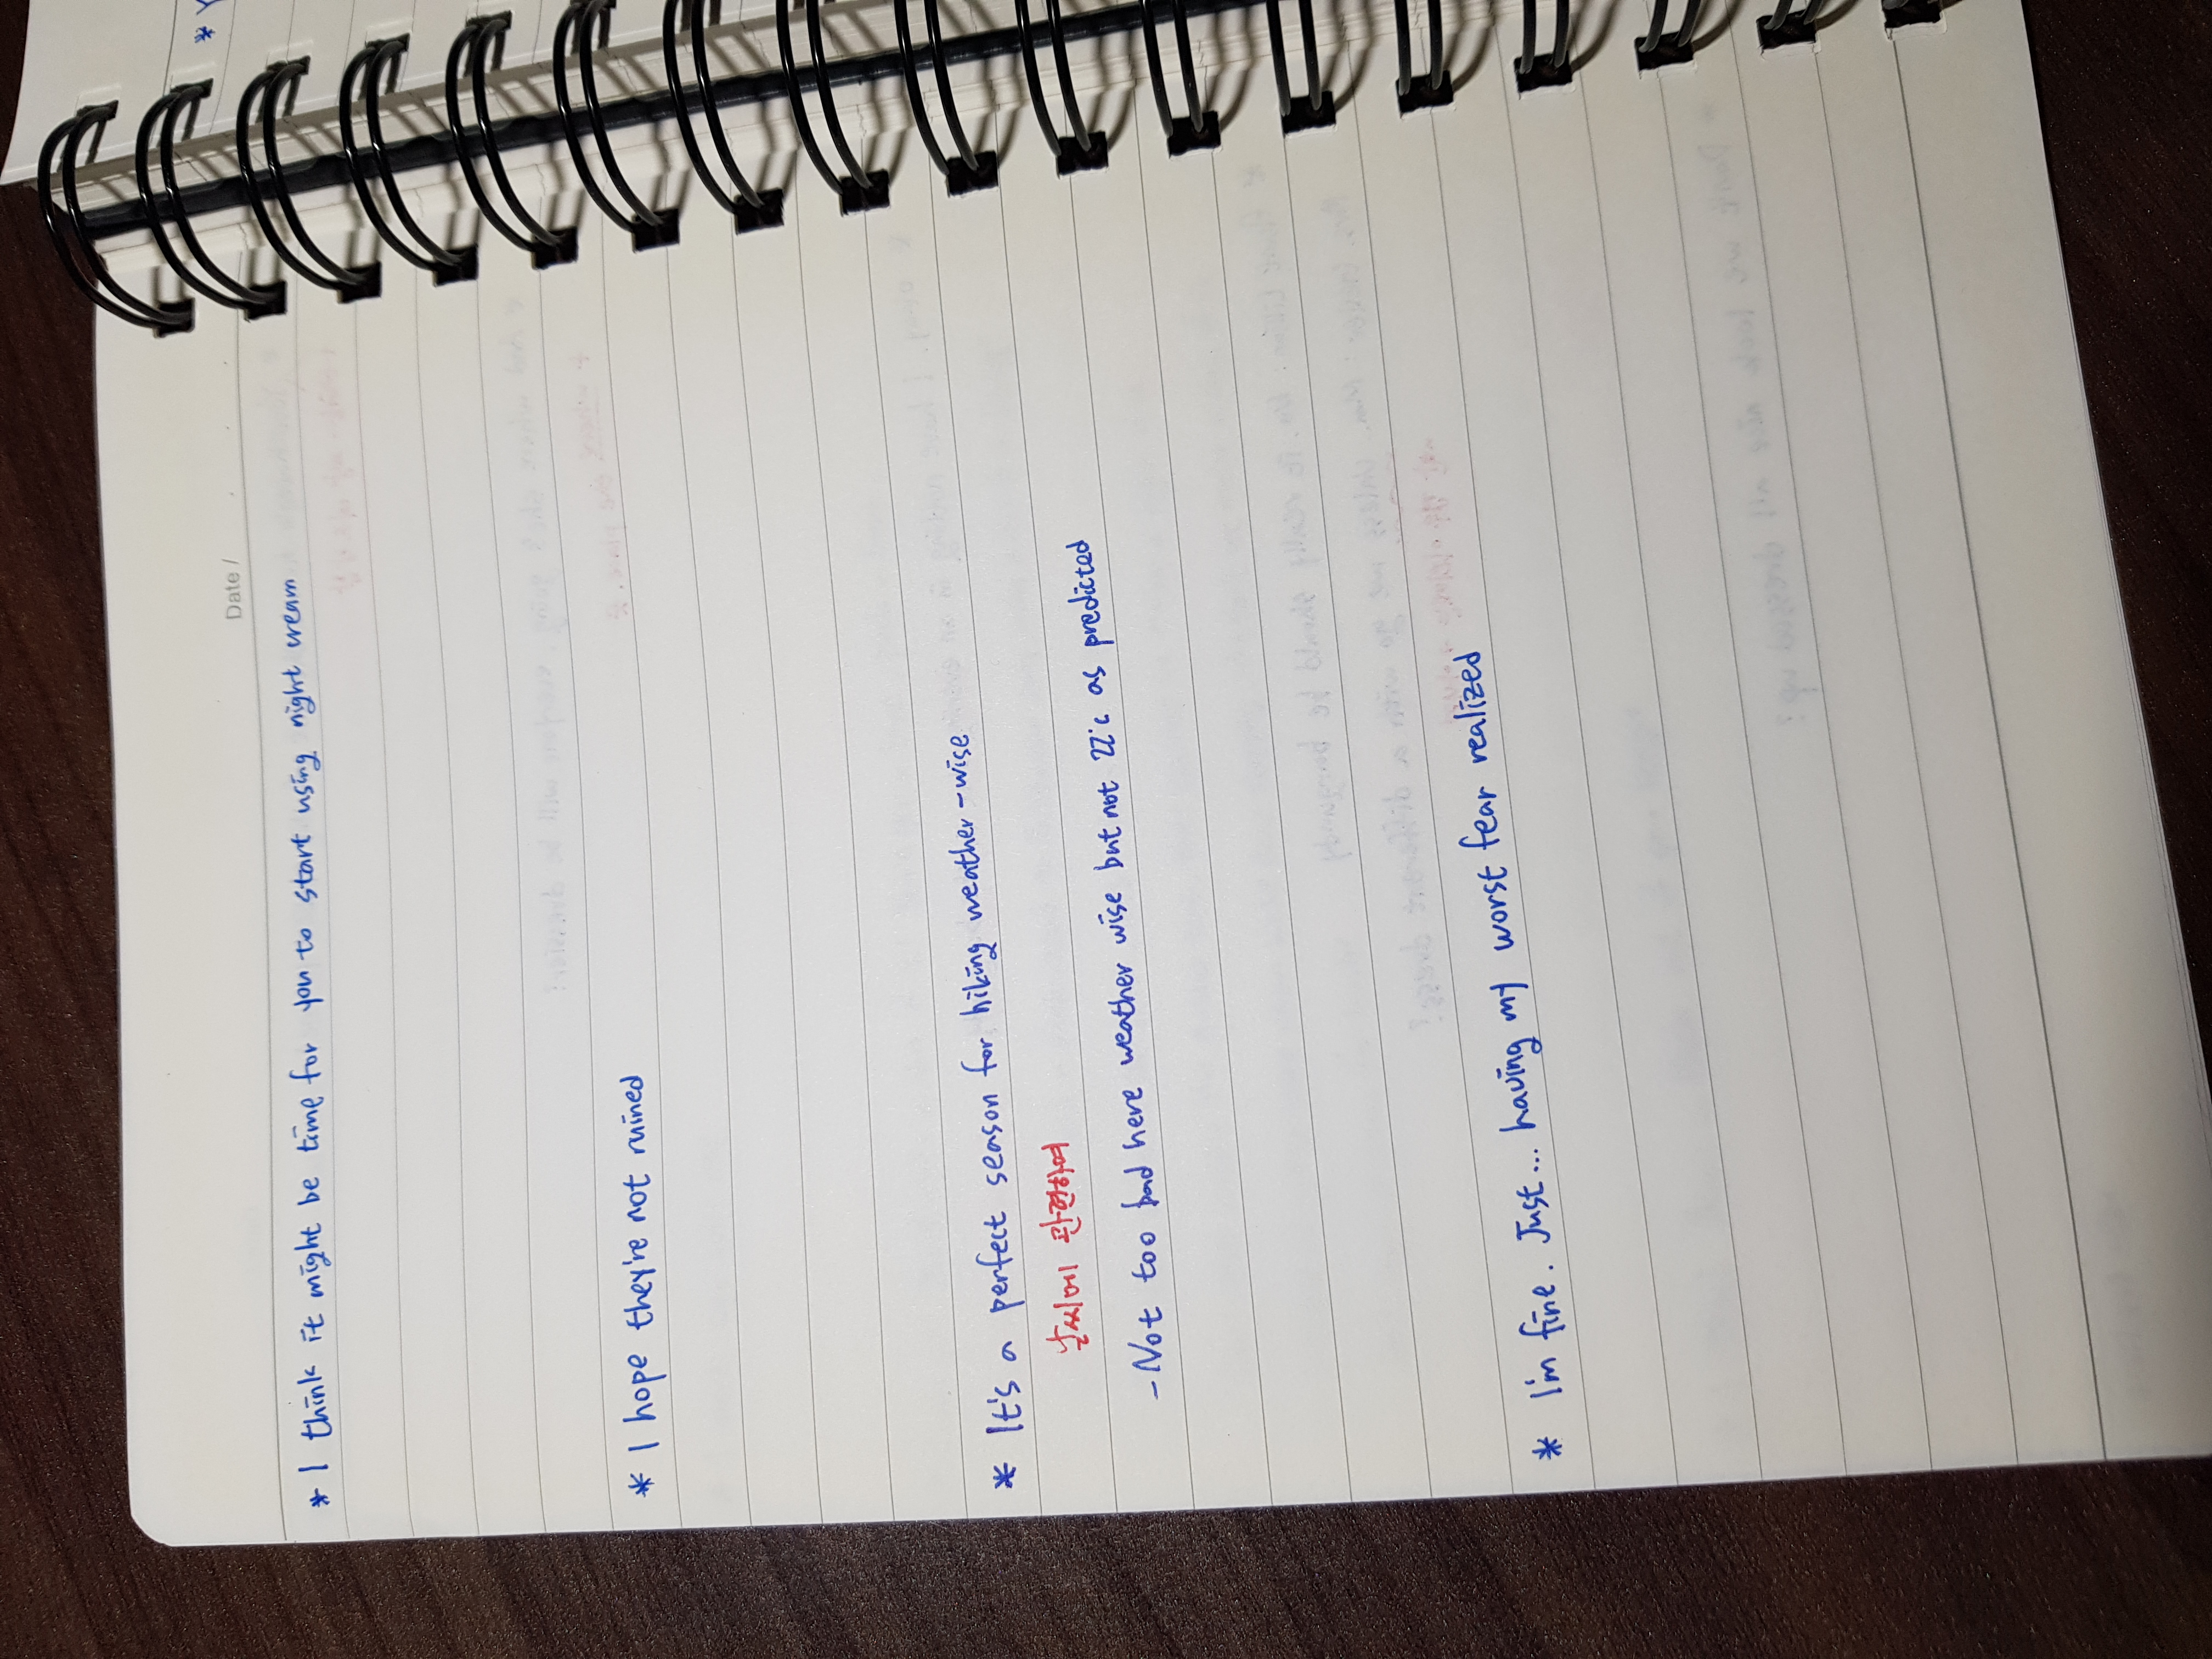 Date /
* I think it might be time for you to start using night cream
* I hope they're not ruined
* It's a perfect season for hiking weather-wise
날씨에 관련하여
- Not too bad here weather wise but not 22°c as predicted
* I'm fine. Just... having my worst fear realized